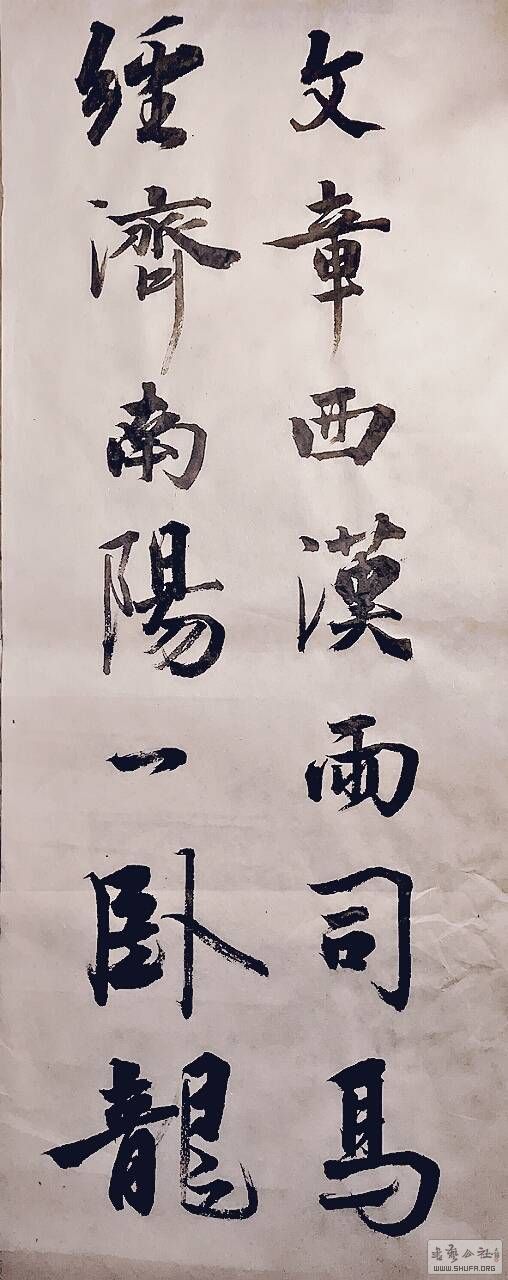 文章西漢兩司馬
經濟南陽一臥龍
書藝公社
WWW.SHUFA.ORG